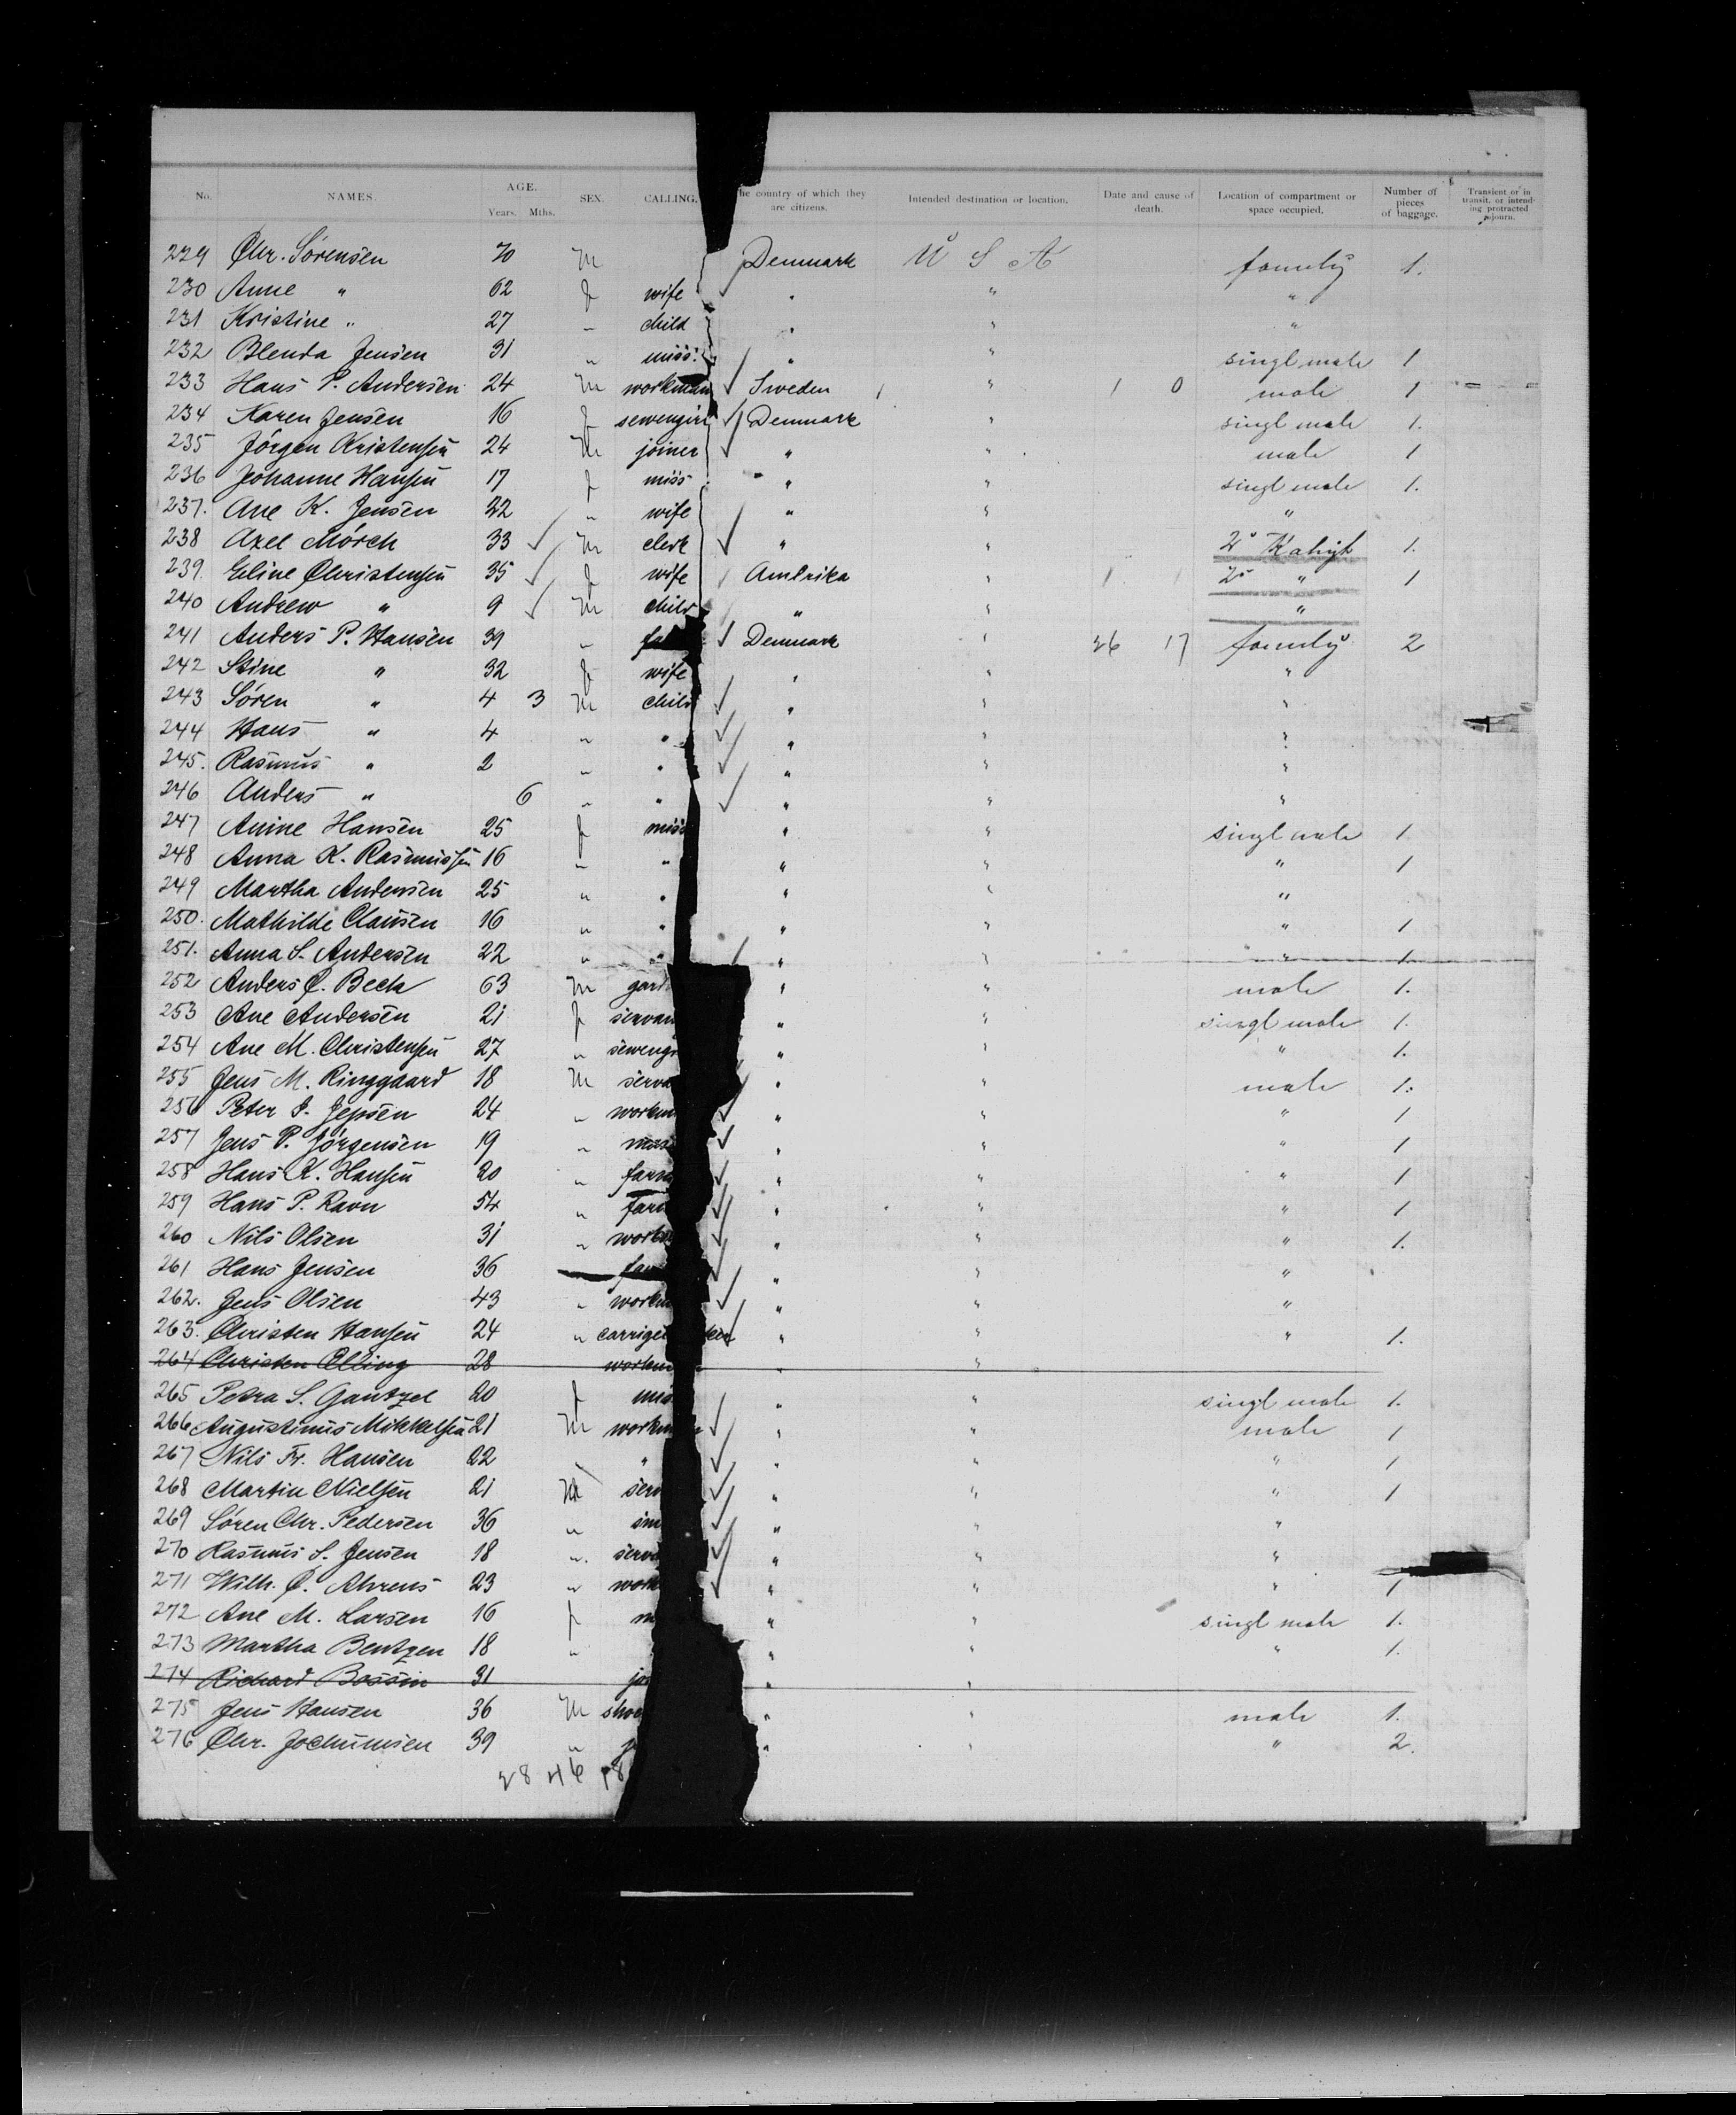 No. NAMES. AGE. Years. Mths. SEX. CALLING. he country of which they are citizens. Intended destination or location. Date and cause of death. Location of compartment or space occupied. Number of pieces of baggage. Transient or in transit, or intending protracted sojourn.
229 Chr. Sörensen 70 M Denmark U S A family 1.
230 Anne " 62 f wife " " "
231 Kristine " 27 " child " " "
232 Blenda Jensen 31 " miss. " " singl male 1
233 Hans P. Andersen 24 M workman Sweden " 1 0 male 1
234 Karen Jensen 16 f sewengirl Denmark " singl male 1.
235 Jörgen Kristensen 24 M joiner " " male 1
236 Johanne Hansen 17 f miss " " singl male 1.
237. Ane K. Jensen 22 " wife " " "
238 Axel Mörch 33 M clerk " " 2° Kahyt 1.
239. Eline Christensen 35 f wife Amerika " 2° " 1
240 Andrew " 9 M child " " "
241 Anders P. Hansen 39 " Denmark " 26 17 family 2
242 Stine " 32 f wife " " "
243 Sören " 4 3 M child " " "
244 Hans " 4 " " " " "
245. Rasmus " 2 " " " " "
246 Anders " 6 " " " " "
247 Anine Hansen 25 f miss " " singl male 1
248 Anna K. Rasmussen 16 " " " " " 1
249 Martha Andersen 25 " " " " "
250. Mathilde Clausen 16 " " " " " 1
251. Anna S. Andersen 22 " " " " " 1
252 Anders C. Beck 63 M gard " " male 1.
253 Ane Andersen 21 f servan " " singl male 1.
254 Ane M. Christensen 27 " seweng " " " 1.
255 Jens M. Ringgaard 18 M serva " " male 1.
256 Peter J. Jepsen 24 " workm " " " 1
257 Jens P. Jörgensen 19 " " " " 1
258 Hans K. Hansen 20 " farm " " " 1
259 Hans P. Ravn 54 " farm " " " 1
260 Nils Olsen 31 " workm " " " 1.
261 Hans Jensen 36 " " "
262. Jens Olsen 43 " workm " " "
263. Christen Hansen 24 " carrige ker " " " 1.
264 Christen Elling 28 workm " "
265 Petra S. Gantzel 20 f mis " " singl male 1.
266 Augustinus Mikkelsen 21 M workm " " male 1
267 Nils Fr. Hansen 22 " " " " 1
268 Martin Nielsen 21 M serv " " " 1
269 Sören Chr. Pedersen 36 " sm " " "
270 Rasmus S. Jensen 18 " serva " " "
271 Wilh. C. Ahrens 23 " work " " " 1
272 Ane M. Larsen 16 f m " " singl male 1.
273 Martha Bentzen 18 " " " " 1.
274 Richard Bossin 31 jo " "
275 Jens Hansen 36 M shoe " " male 1.
276 Chr. Jochumsen 39 " j " " " 2.
28 46